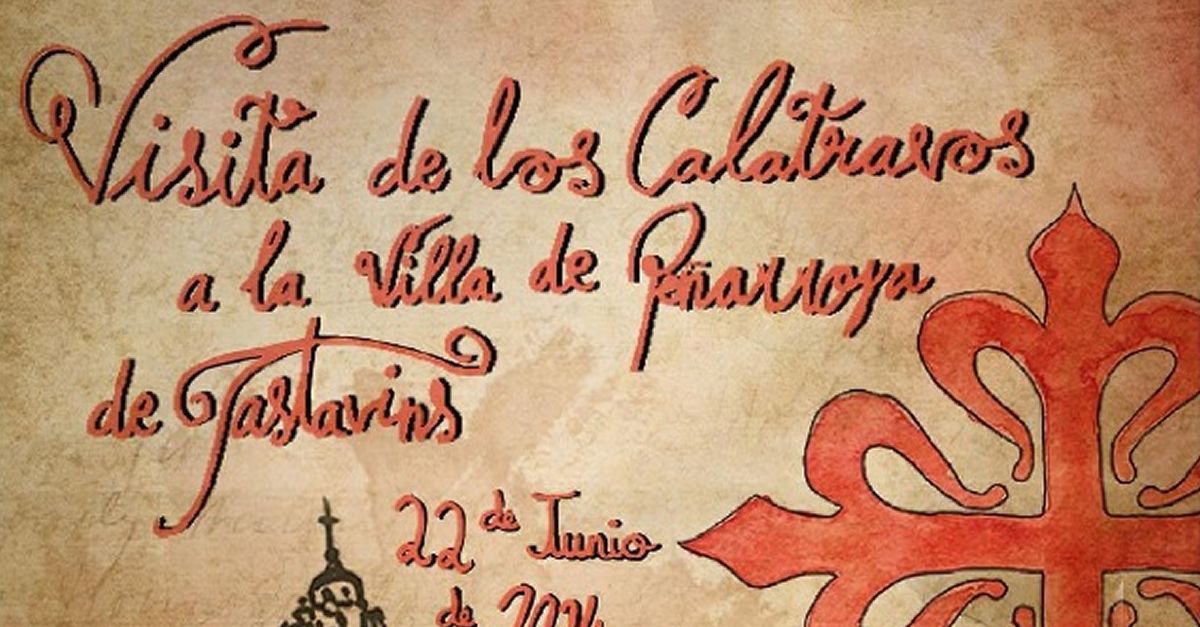 Visita de los Calatravos
a la Villa de Peñarroya
de Tastavins
22 de Junio
de